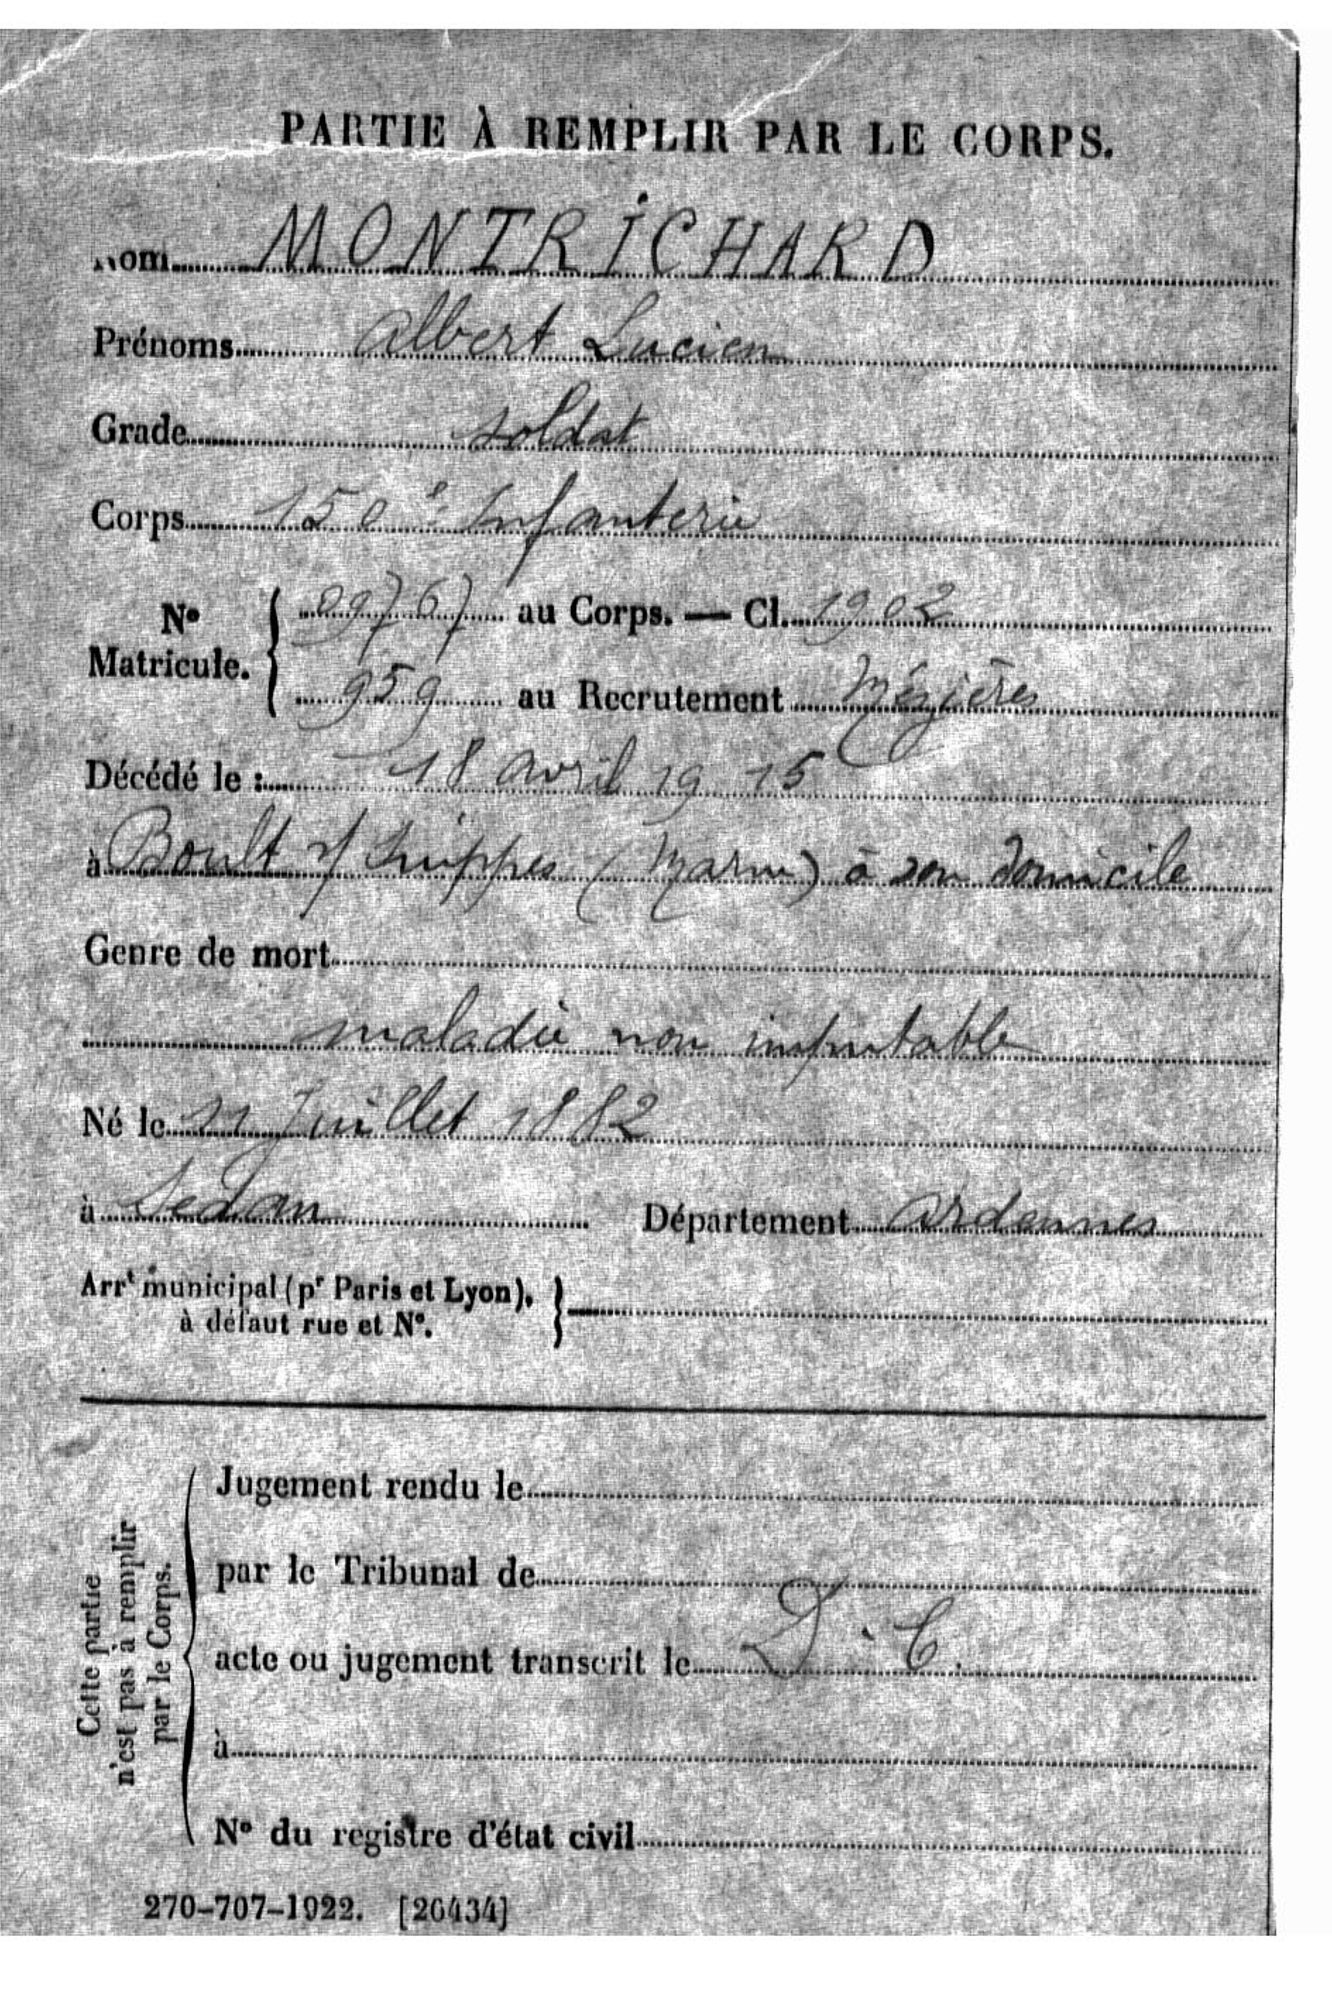 PARTIE À REMPLIR PAR LE CORPS.
Nom MONTRICHARD
Prénoms Albert Lucien
Grade soldat
Corps 150e Infanterie
No Matricule. 09767 au Corps. — Cl. 1902
959 au Recrutement Mézières
Décédé le : 18 avril 1915
à Boult s/ Suippes (Marne) à son domicile
Genre de mort
maladie non imputable
Né le 11 Juillet 1882
à Sedan Département Ardennes
Arrt municipal (pr Paris et Lyon),
à défaut rue et No.
Cette partie
n'est pas à remplir
par le Corps.
Jugement rendu le
par le Tribunal de
acte ou jugement transcrit le D. C.
à
No du registre d'état civil
270-707-1922. [26434]